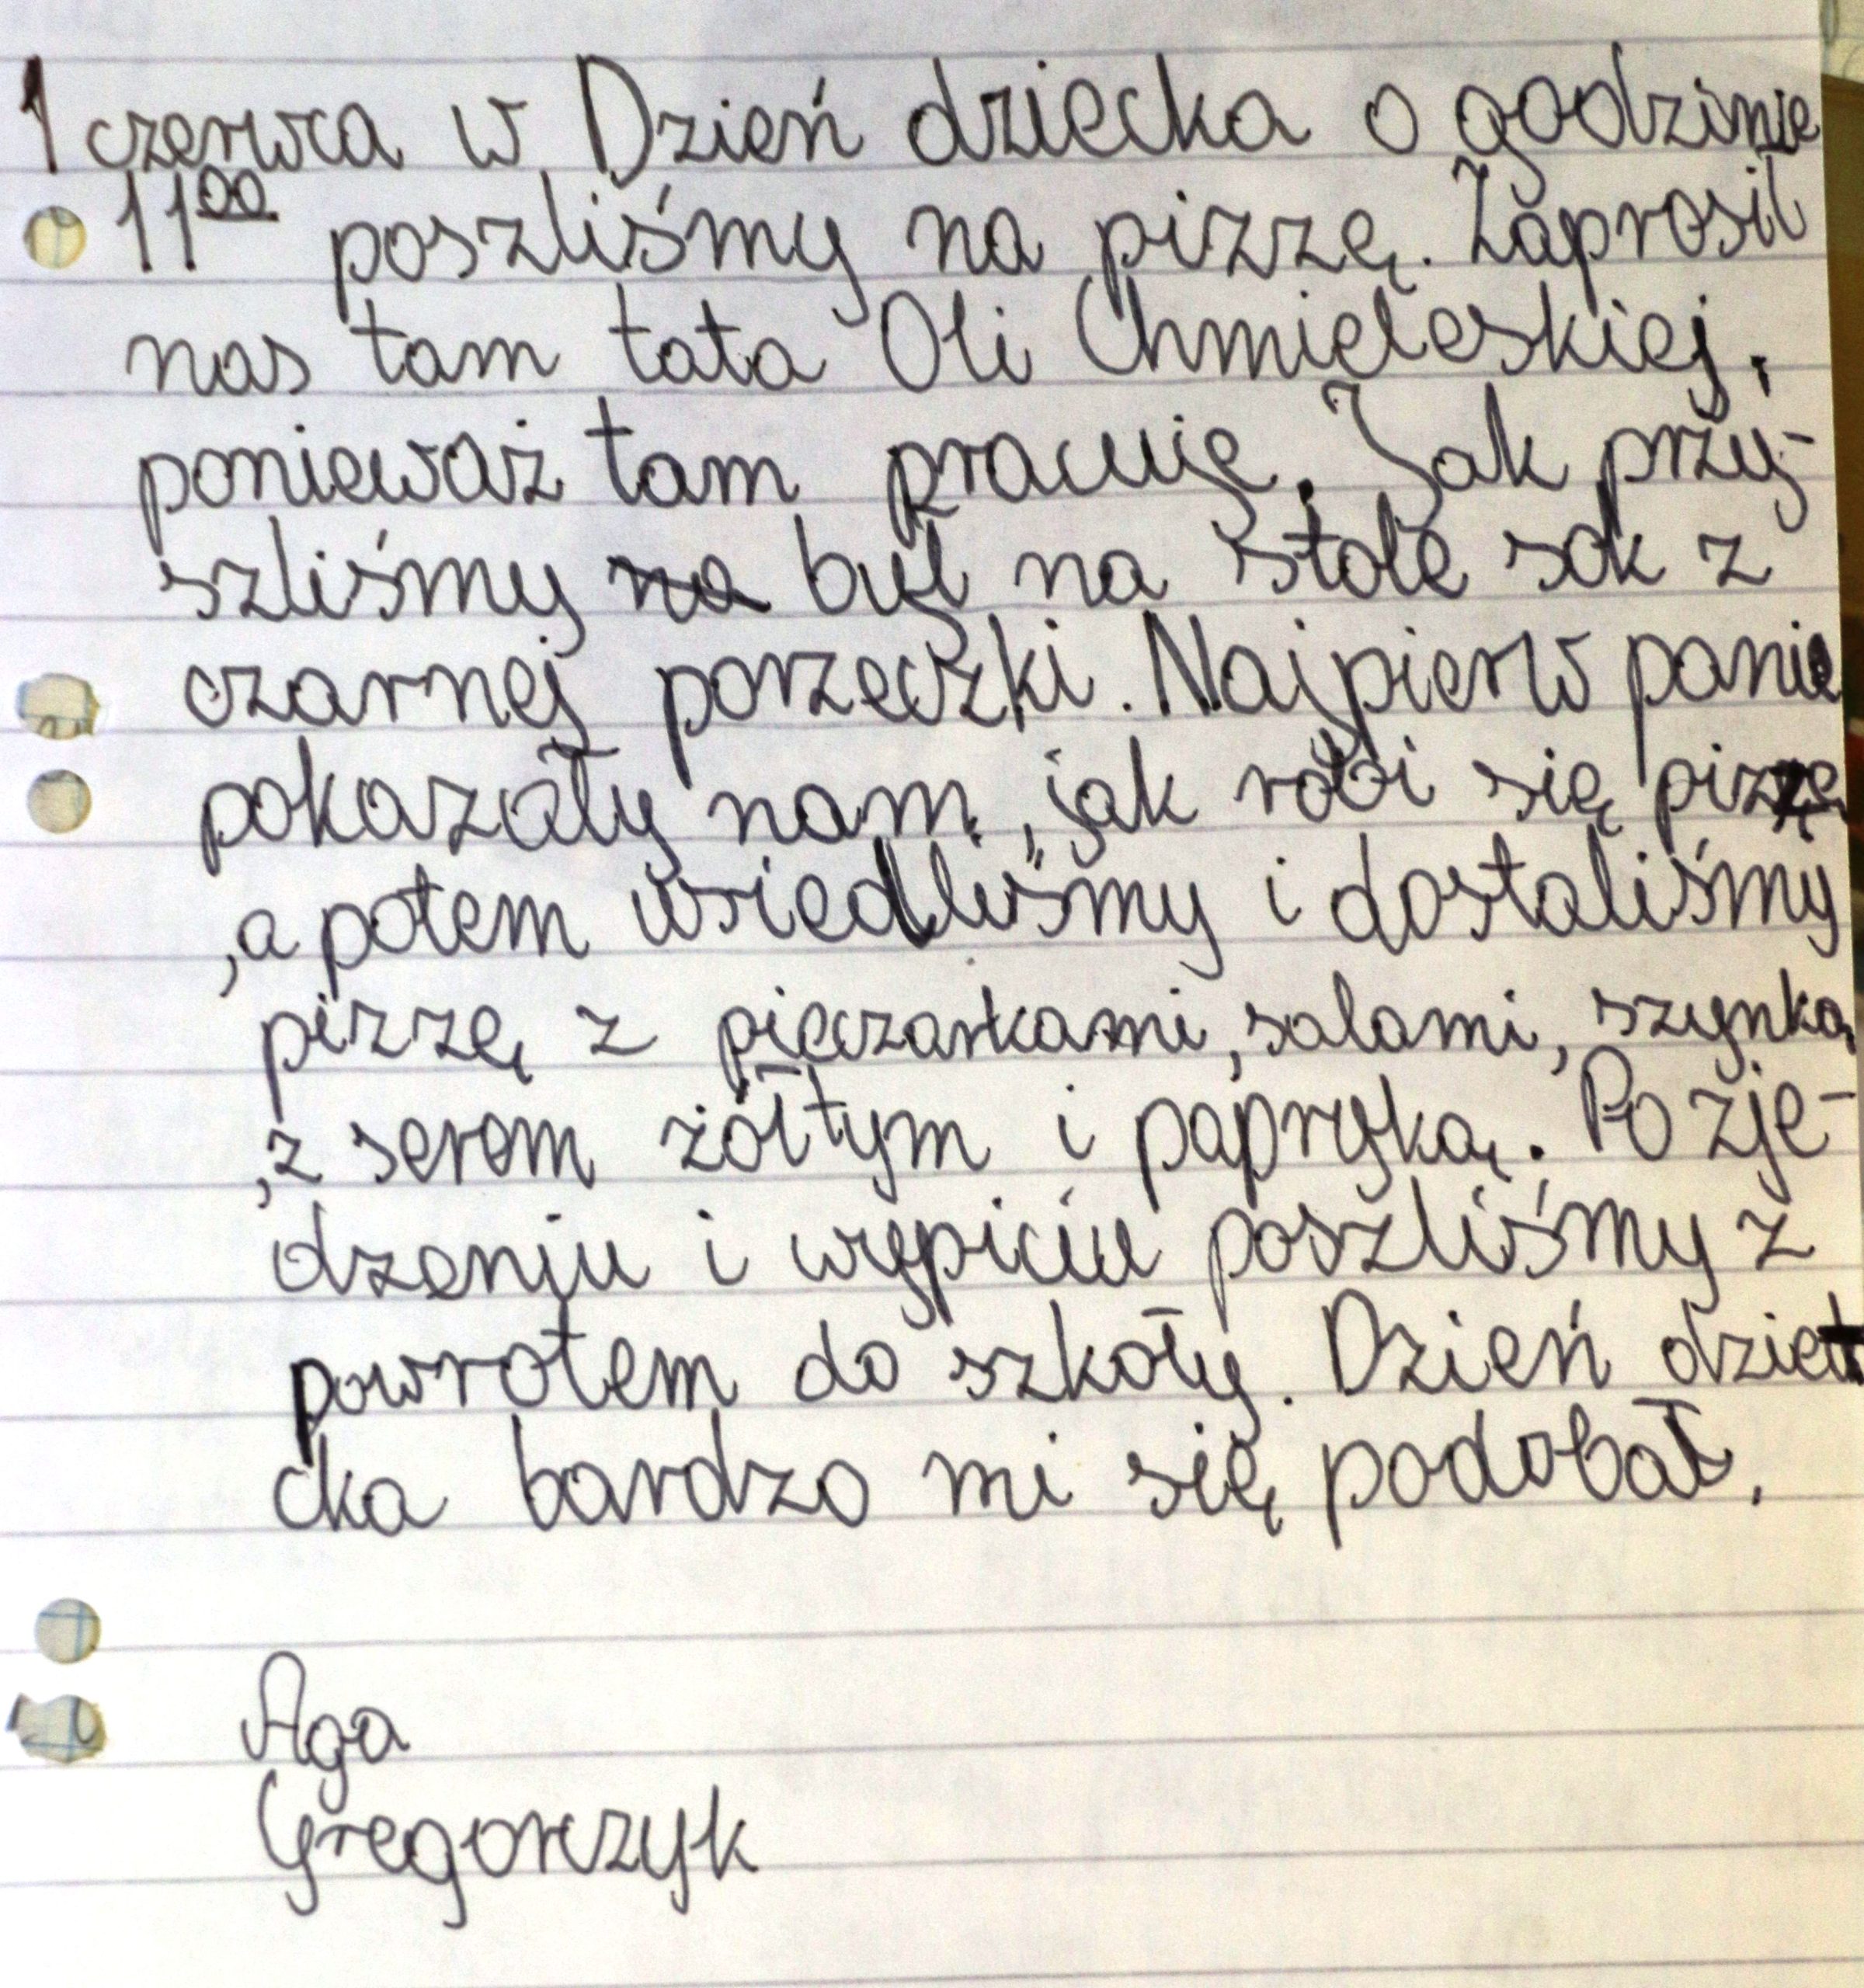 1 czerwca w Dzień dziecka o godzinie
11⁰⁰ poszliśmy na pizzę. Zaprosił
nas tam tata Oli Chmieleskiej,
ponieważ tam pracuje. Jak przy-
szliśmy ~~na~~ był na stole sok z
czarnej porzeczki. Najpierw panie
pokazały nam, jak robi się pizzę
,a potem usiedliśmy i dostaliśmy
pizzę z pieczarkami, salami, szynką
,z serem żółtym i papryką. Po zje-
dzeniu i wypiciu poszliśmy z
powrotem do szkoły. Dzień dzie-
cka bardzo mi się podobał.
Aga
Gregorczyk